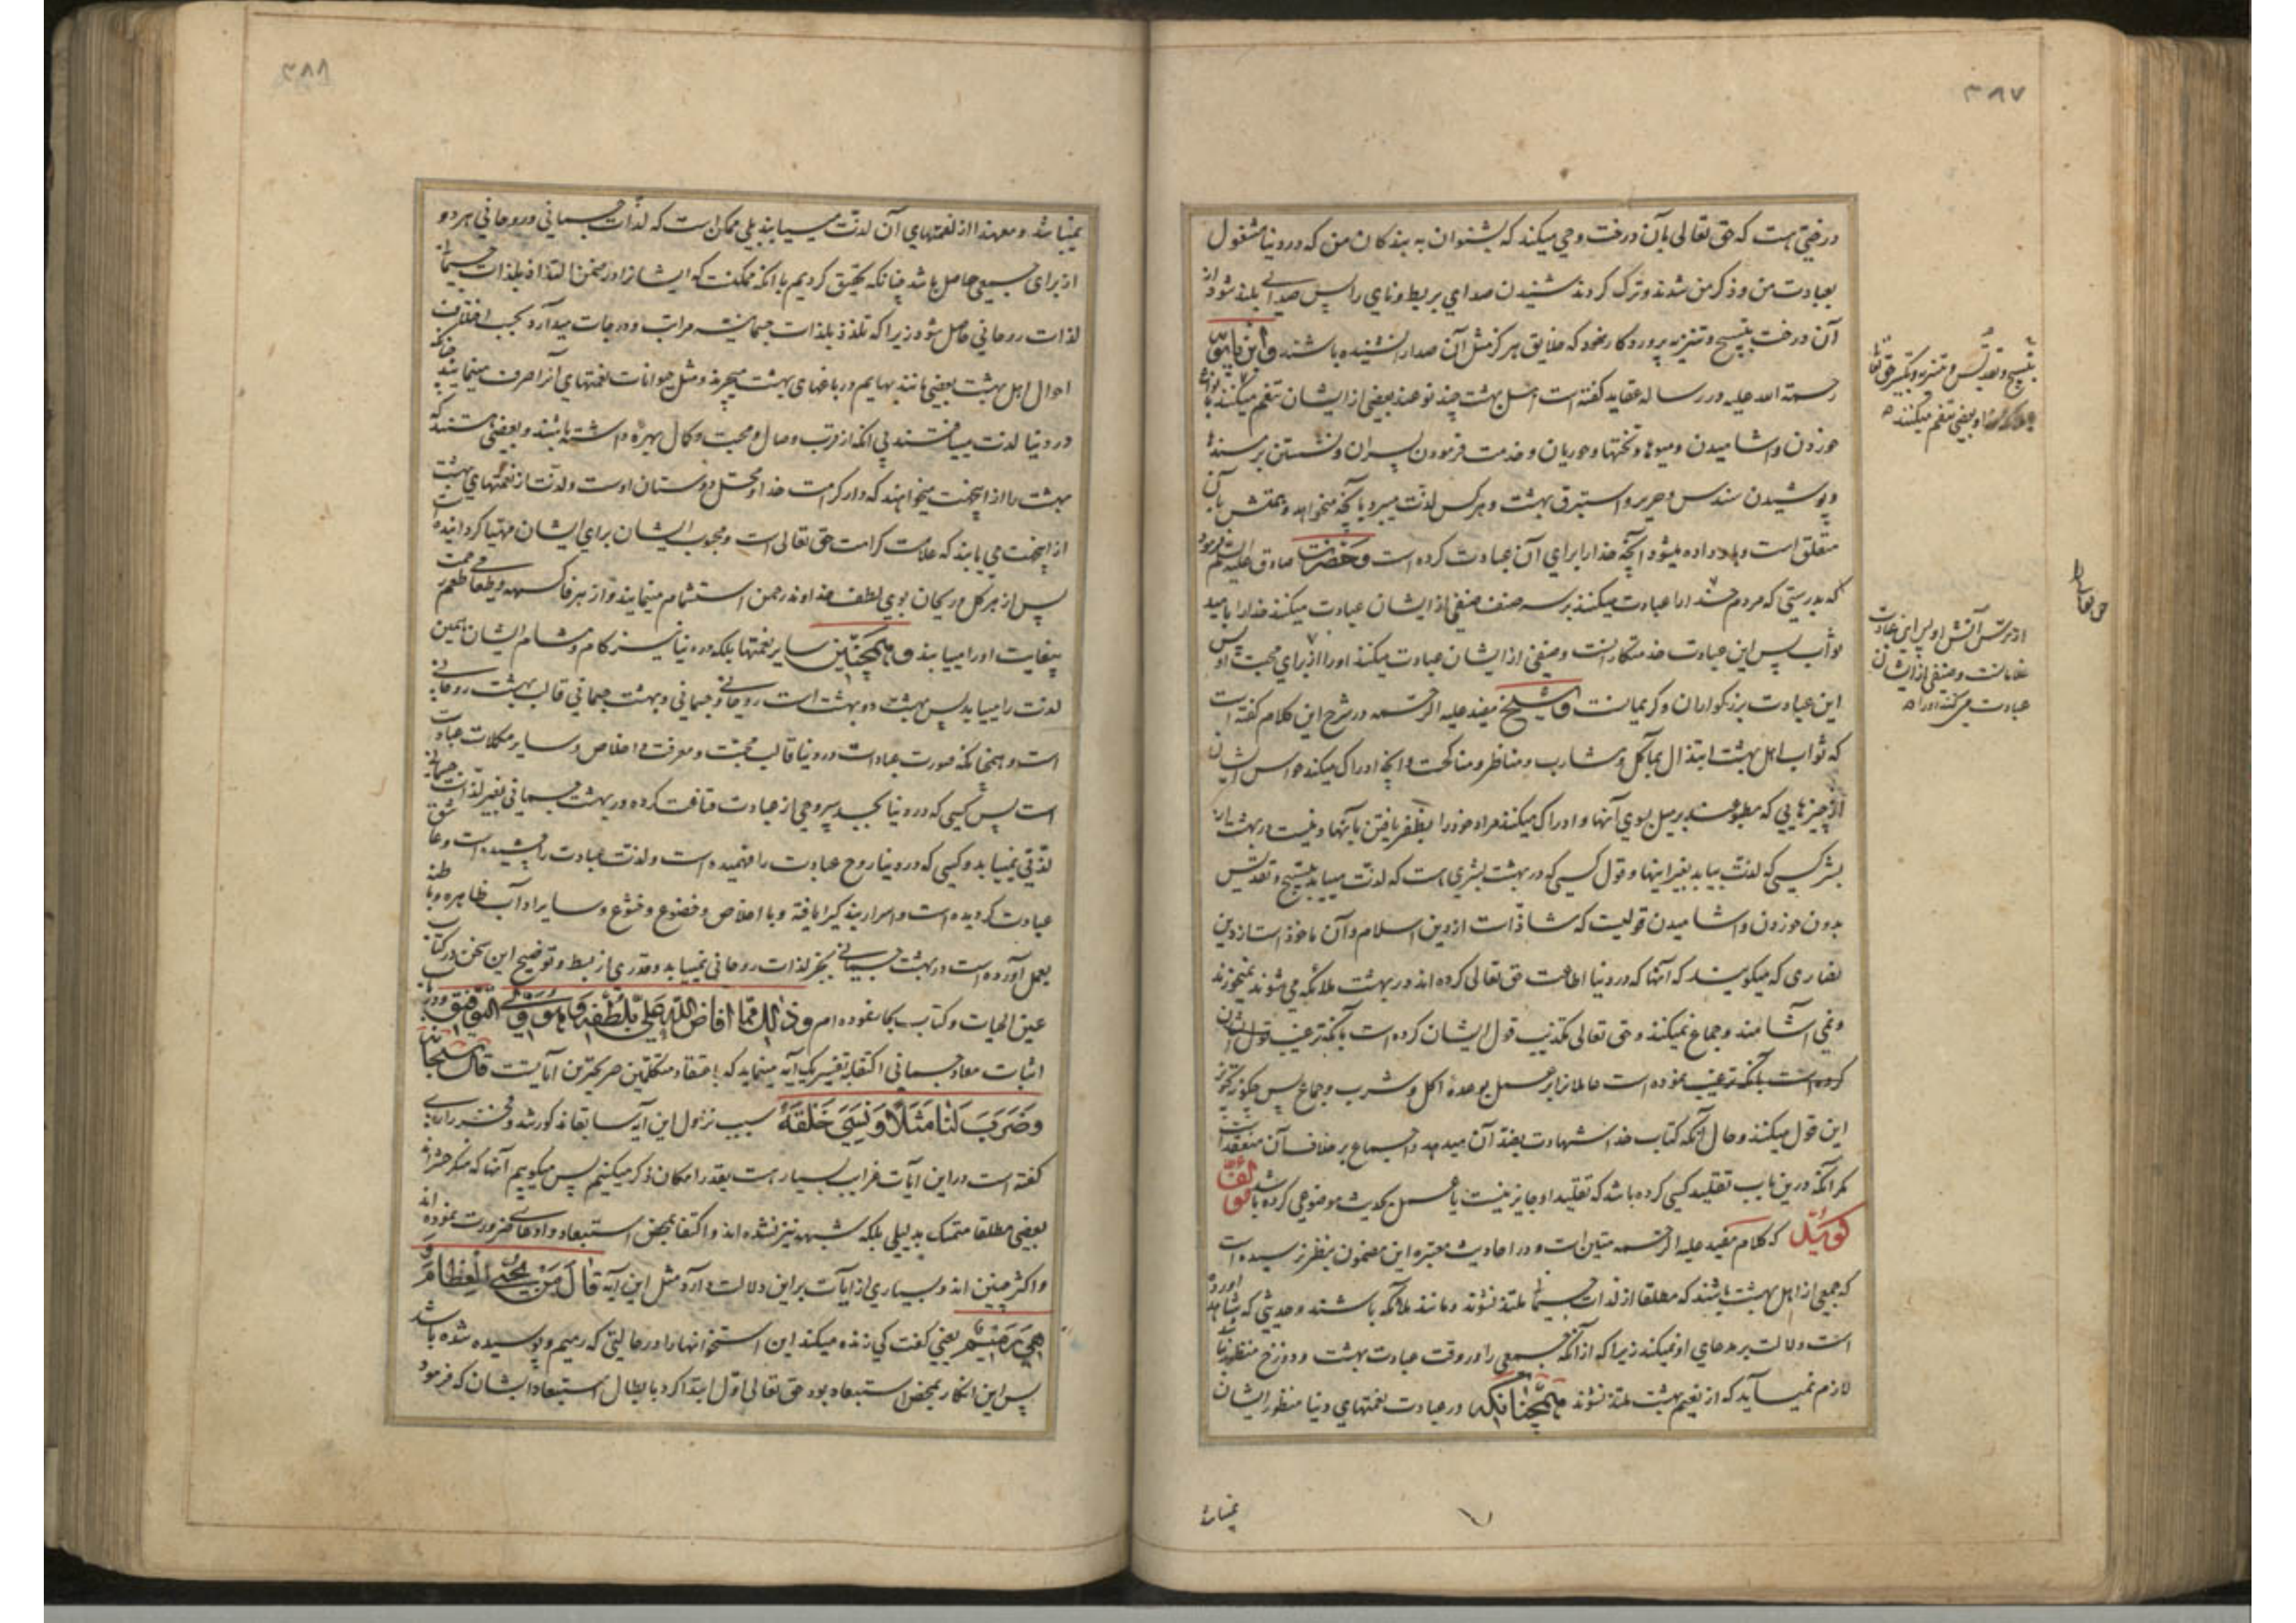 ۳۸۷
درختی است که حق تعالی بآن درخت وحی میکند که بشنوان به بندکان من که در دنیا مشغول
بعبادت من و ذکر من شدند و ترک کردند شنیدن صدای بربط و نای را پس صدائی بلند شود از
آن درخت بتسبیح و تنزیه پروردکار خود که خلایق هرکز مثل آن صدا را نشنیده باشند و ابن بابویه
رحمة الله علیه در رساله عقاید کفته است اهل بهشت چند نوعند بعضی از ایشان تنعم میکنند بانواع
خوردن و اشامیدن و میوها و تختها و حوریان و خدمت فرمودن پسران و نشستن بر مسندها
و پوشیدن سندس و حریر و استبرق بهشت و هرکس لذت میبرد بآنچه میخواهد و همتش بآن
متعلق است و باو داده میشود آنچه خدا را برای آن عبادت کرده است و حضرت صادق علیه السلام فرمود
که بدرستی که مردم خدا را عبادت میکنند بر سه صنف صنفی از ایشان عبادت میکنند خدا را بامید
ثواب پس این عبادت خدمتکارانست و صنفی از ایشان عبادت میکنند او را از برای محبت او پس
این عبادت بزرکواران و کریمانست و شیخ مفید علیه الرحمه در شرح این کلام کفته است
که ثواب اهل بهشت ابتذال بمآکل و مشارب و مناظر و مناکحت و آنچه ادراک میکند حواس ایشان
از چیزهایی که مطبوعند بر میل بسوی آنها و ادراک میکنند مراد خود را بظفر یافتن بآنها و نیست در بهشت از
بشر کسی که لذت بیابد بغیر اینها و قول کسی که در بهشت بشری هست که لذت مییابد بتسبیح و تقدیس
بدون خوردن و اشامیدن قولیست که شاذ است از دین اسلام و آن ماخوذ است از دین
نصاری که میکویند که آنها که در دنیا اطاعت حق تعالی کرده اند در بهشت ملائکه می شوند نمیخورند
و نمی آشامند و جماع نمیکنند و حق تعالی تکذیب قول ایشان کرده است بآنکه ترغیب قول ایشان
کرده است بآنکه ترغیب نموده است عاملانرا بر عمل بوعدهٔ اکل و شرب و جماع پس چکونه تجویز
این قول میکنند و حال آنکه کتاب خدا شهادت بضد آن میدهد و اجماع بر خلاف آن منعقد است
مکر آنکه درین باب تقلید کسی کرده باشد که تقلید او جایز نیست یا عمل بحدیث موضوعی کرده باشد مؤلف
کوید که کلام مفید علیه الرحمه متین است و در احادیث معتبره این مضمون بنظر نرسیده است
که جمعی از اهل بهشت باشند که مطلقا از لذات جسمانی ملتذ نشوند و مانند ملائکه باشند و حدیثی که شاهد آورده
است دلالت بر مدعای او نمیکند زیرا که از آنکه جمعی را در وقت عبادت بهشت و دوزخ منظور نباشد
لازم نمیآید که از نعیم بهشت ملتذ نشوند همچنانکه در عبادت نعمتهای دنیا منظور ایشان
نمیباشد
بتسبیح و تقدیس و تنزیه و تکبیر حق تعالی
و بعضی تنعم میکنند
از ترس آتش او پس این عبادت
غلامانست و صنفی از ایشان
عبادت میکنند او را
حق تعالی
۳۸۸
نمیباشد و معهذا از نعمتهای آن لذت مییابند بلی ممکن است که لذات جسمانی و روحانی هر دو
از برای جمعی حاصل باشد چنانکه تحقیق کردیم با آنکه ممکنست که ایشانرا در ضمن التذاذ بلذات جسمانی
لذات روحانی حاصل شود زیرا که تلذذ بلذات جسمانیه مراتب و درجات میدارد بحسب اختلاف
احوال اهل بهشت بعضی مانند بهایم در باغهای بهشت میچرند و مثل حیوانات نعمتهای آنرا صرف مینمایند چنانکه
در دنیا لذت مییافتند بی آنکه از قرب و وصال و محبت و کمال بهره داشته باشند و بعضی هستند که
بهشت را از آنجهت میخواهند که دار کرامت خدا و محل دوستان اوست و لذت از نعمتهای بهشت
از انجهت می یابند که علامت کرامت حق تعالی است و محبوب ایشان برای ایشان مهیا کردانیده است
پس از هر کل و ریحان بوی لطف خداوند رحمن استشمام مینمایند و از هر فاکهه و طعامی طعم محبت
بیغایت او را مییابند و همچنین سایر نعمتها بلکه در دنیا نیز کام و مشام ایشان همین
لذت را مییابد پس بهشت دو بهشت است روحانی و جسمانی و بهشت جسمانی قالب بهشت روحانی
است و همچنانکه صورت عبادت در دنیا قالب محبت و معرفت و اخلاص و سایر مکملات عبادت
است پس کسی که در دنیا بجسد بیروحی از عبادت قناعت کرده در بهشت جسمانی بغیر لذات جسمانی
لذتی نمییابد و کسی که در دنیا روح عبادت را فهمیده است و لذت عبادت را چشیده است و عاشق
عبادت کردیده است و اسرار بندکی را یافته و با اخلاص و خضوع و خشوع و سایر اداب ظاهره و باطنه
بعمل آورده است در بهشت جسمانی بجز لذات روحانی نمییابد و قدری از بسط و توضیح این سخن در کتاب
عین الحیات و کتاب بحار نموده ام و ذلک مما افاض الله علی بلطفه و هو ولی التوفیق و در باب
اثبات معاد جسمانی اکتفا بتفسیر یک آیه مینماید که باعتقاد متکلمین صریحترین آیاتست قال سبحانه
وَضَرَبَ لَنَا مَثَلًا وَنَسِيَ خَلْقَهُ سبب نزول این آیه سابقا مذکور شد و فخر رازی
کفته است در این آیات غرایب بسیار هست بقدر امکان ذکر میکنیم پس میکوییم آنها که منکر حشراند
بعضی مطلقا متمسک بدلیلی بلکه شبهه نیز نشده اند و اکتفا بمحض استبعاد و ادعای ضرورت نموده اند
و اکثر چنین اند و بسیاری از ایات بر این دلالت دارد مثل این آیه قَالَ مَنْ يُحْيِي الْعِظَامَ وَ
هِيَ رَمِيمٌ یعنی کفت کی زنده میکند این استخوانها را در حالتی که رمیم و پوسیده شده باشد
پس این انکار بمحض استبعاد بود حق تعالی اول ابتدا کرد بابطال استبعاد ایشان که فرمود